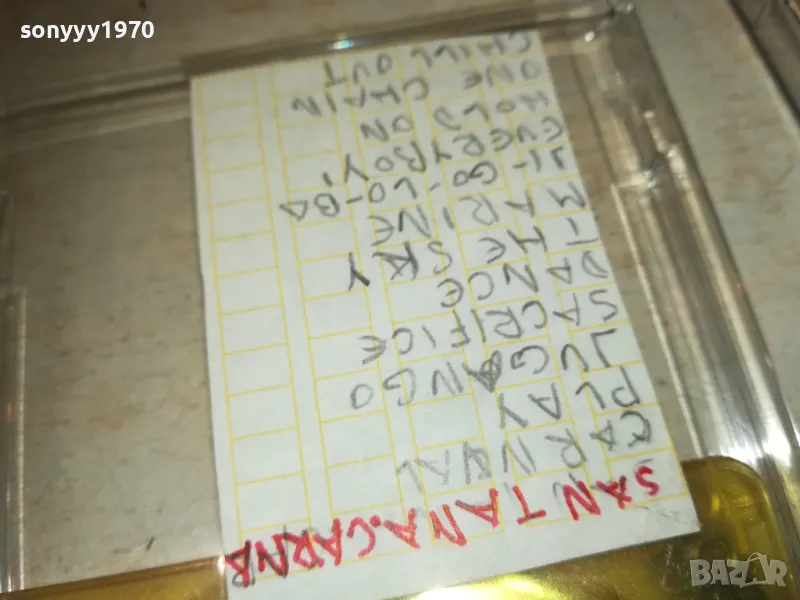 sonyyy1970
SANTANA.CARNA
CARNVAL
PLAY
JUGANGO
SACRIFICE
DANCE
SKY
MARINE
JI-GO-LO-BA
EVERYBOY'
HOLD ON
ONE CHAIN
CHILL OUT
BAZAR